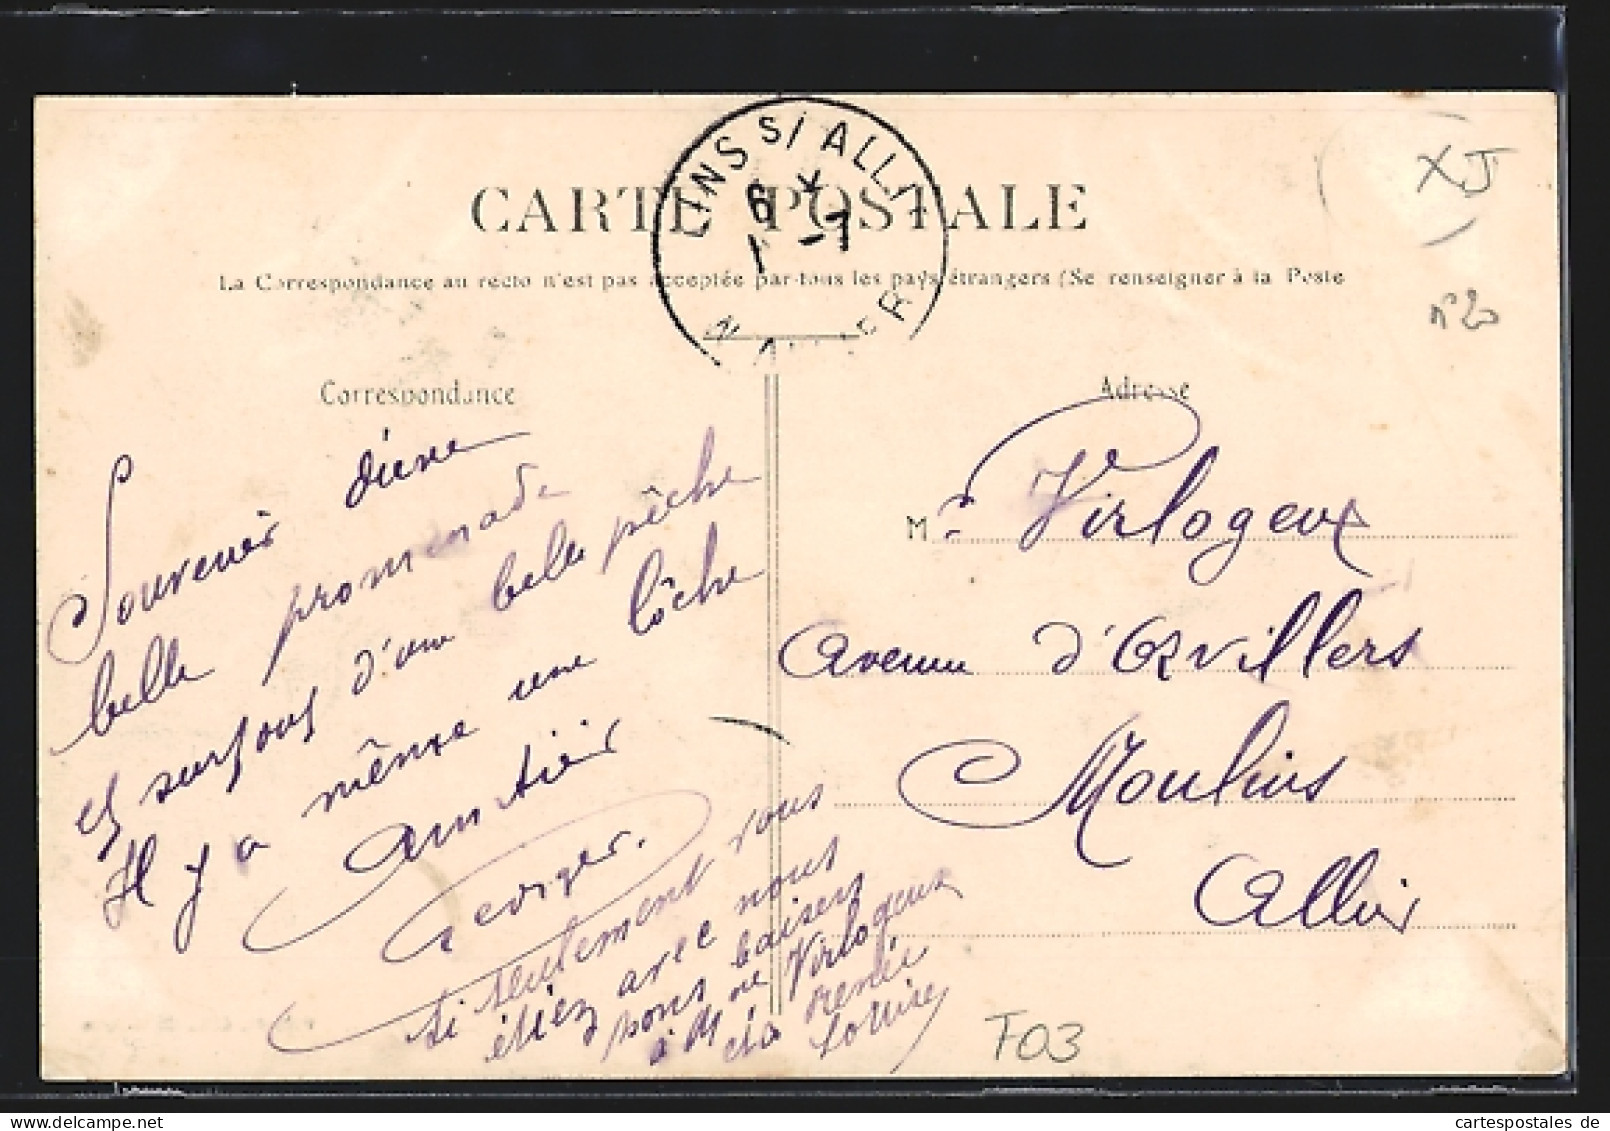 LINS S/ ALLI
6 *
1 -7
CARTE POSTALE
La Correspondance au recto n'est pas acceptée par tous les pays étrangers (Se renseigner à la Poste
XJ
n° 20
Correspondance
Souvenir d'une
belle promenade
et surtout d'une belle pêche
Il y a même une lôche
Amitiés
si seulement vous
étiez avec nous
bons baisers
à Mme Virlogeux
et à renée
Louise
Adresse
Mr Virlogeux
Avenue d'Orvillers
Moulins
Allier
T03
cartespostales de